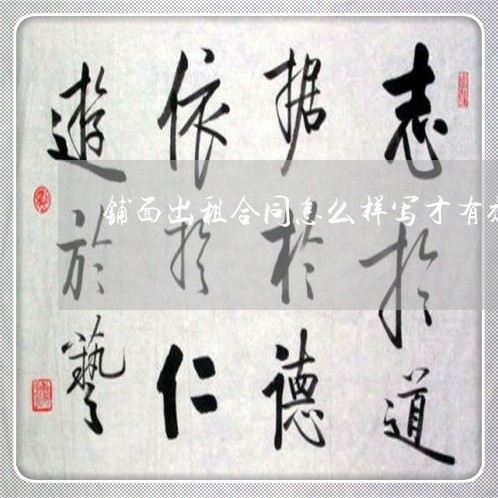 志於道
据於德
依於仁
遊於藝
鋪面出租合同怎么样写才有